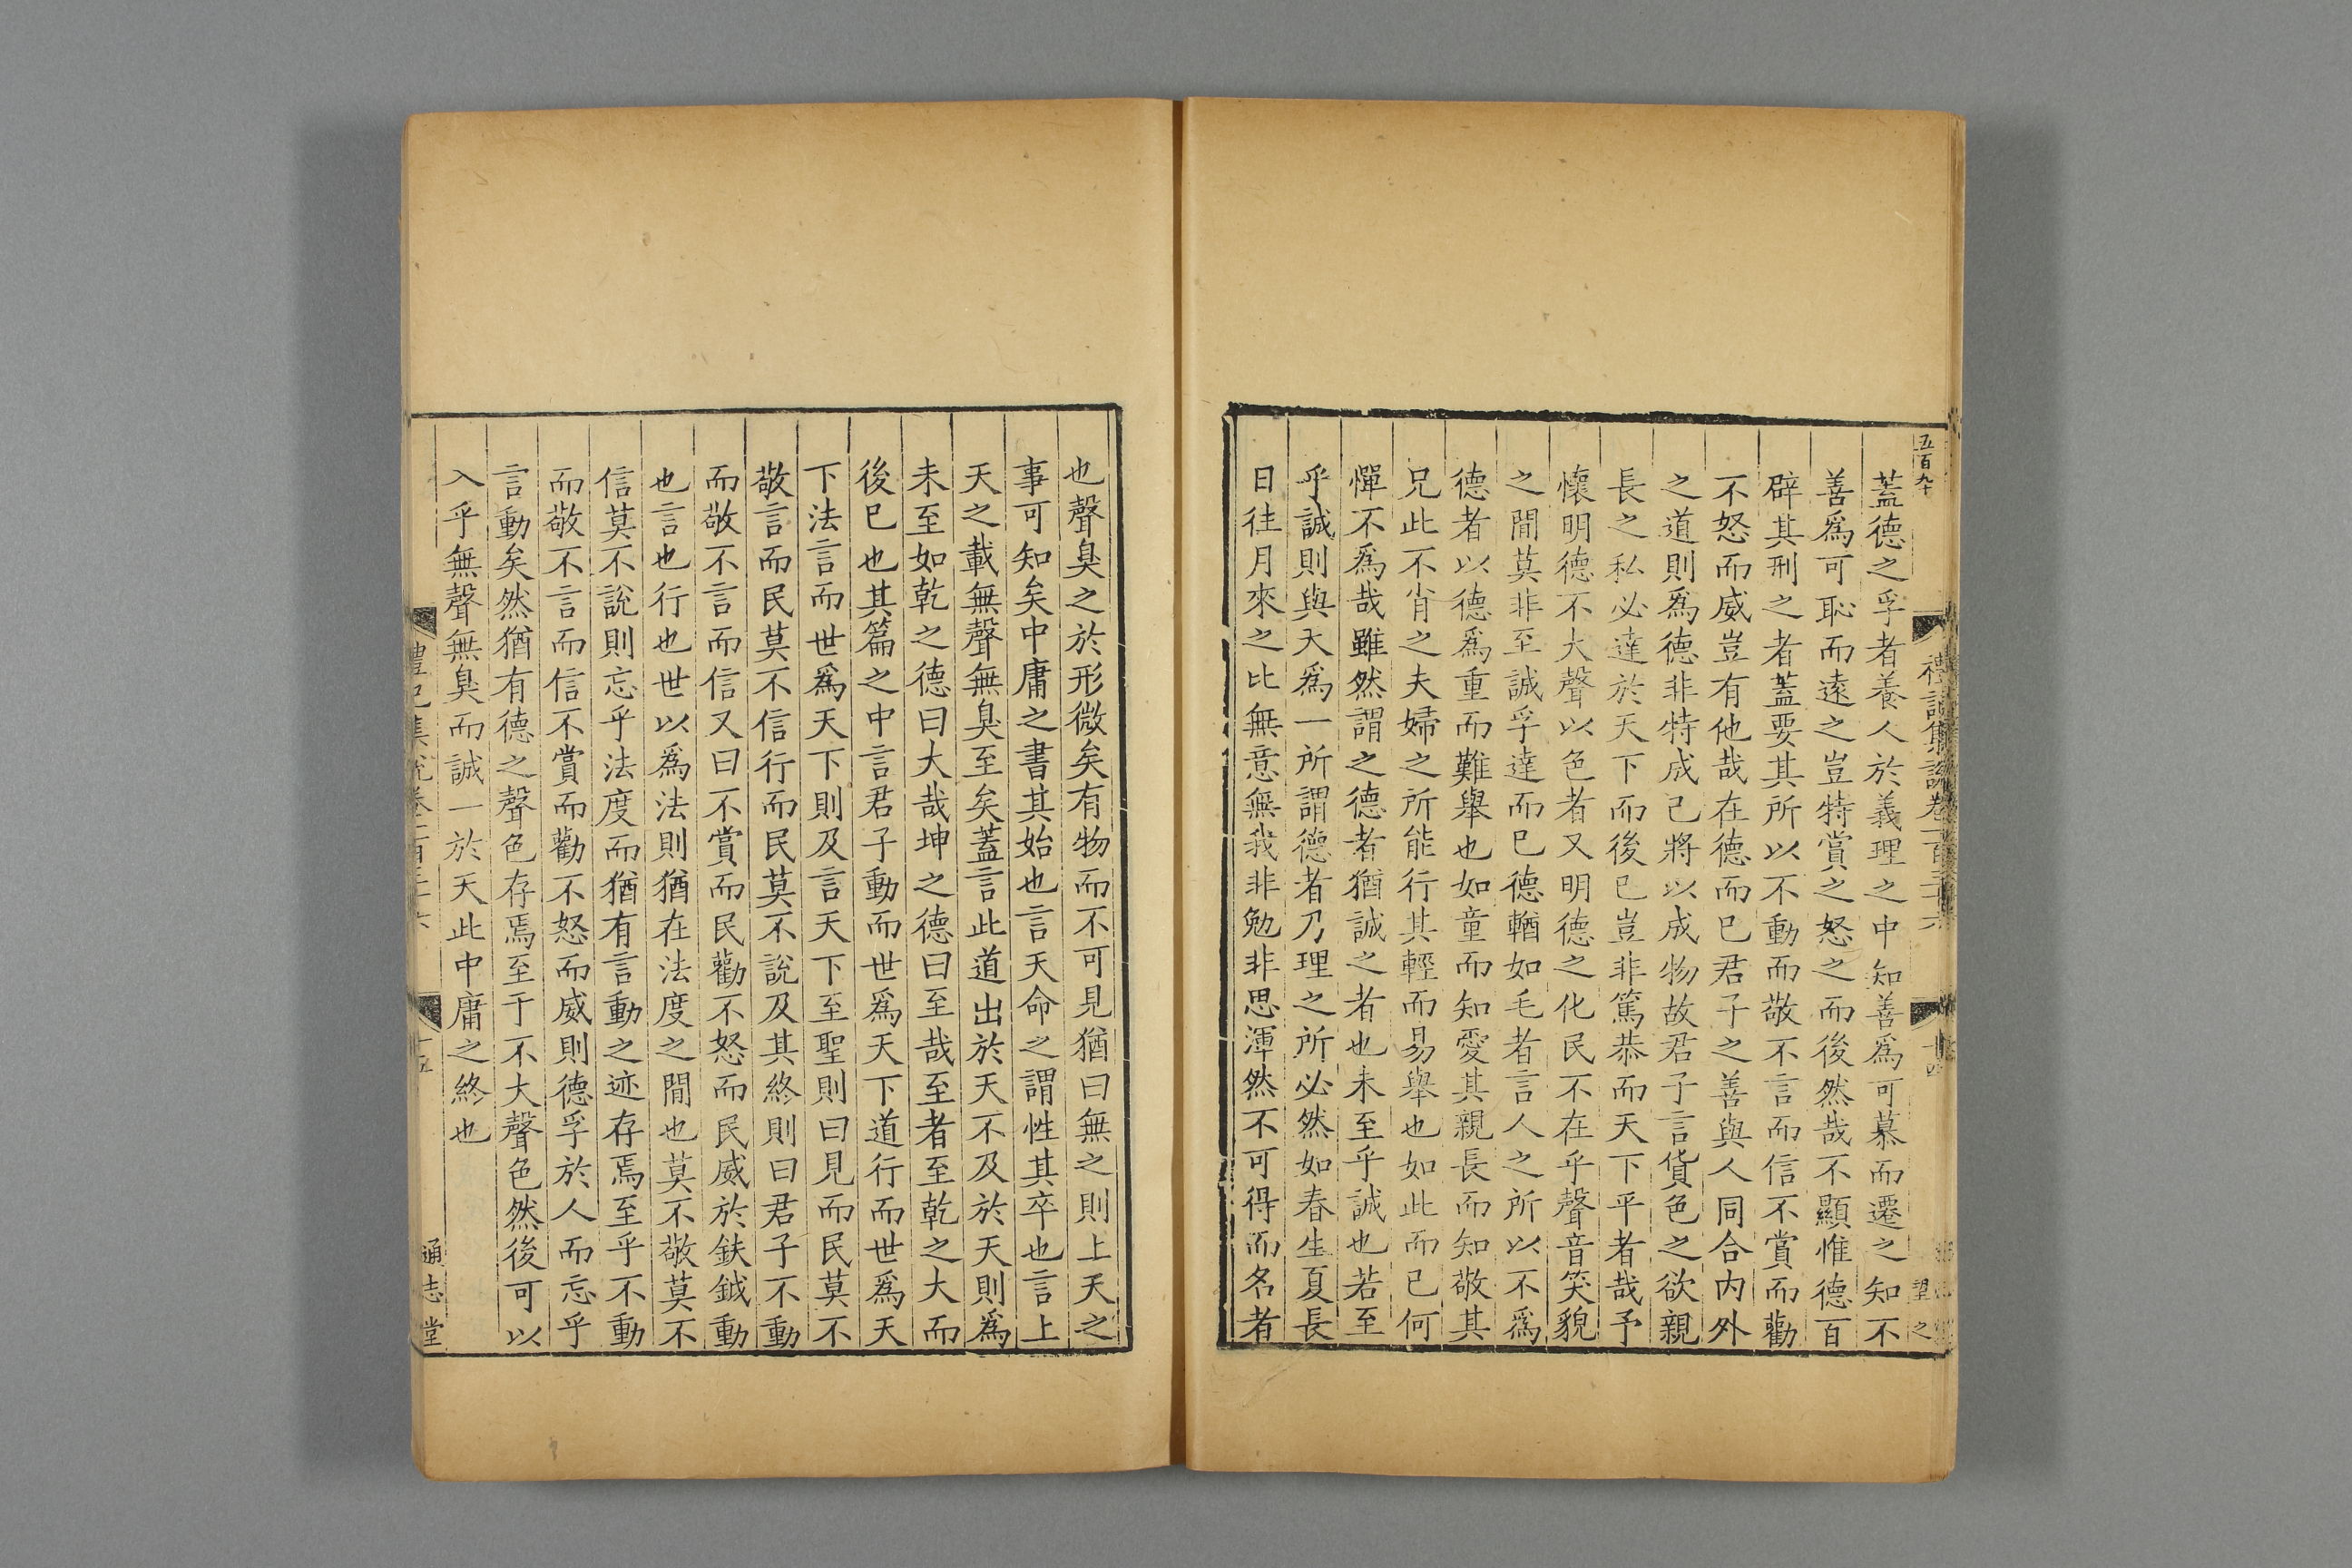 五百九十
禮記集說卷一百三十六
十四
望之
蓋德之孚者養人於義理之中知善爲可慕而遷之知不
善爲可恥而遠之豈特賞之怒之而後然哉不顯惟德百
辟其刑之者蓋要其所以不動而敬不言而信不賞而勸
不怒而威豈有他哉在德而已君子之善與人同合内外
之道則爲德非特成己將以成物故君子言貨色之欲親
長之私必達於天下而後已豈非篤恭而天下平者哉予
懷明德不大聲以色者又明德之化民不在乎聲音笑貌
之間莫非至誠孚達而已德輶如毛者言人之所以不爲
德者以德爲重而難舉也如童而知愛其親長而知敬其
兄此不肖之夫婦之所能行其輕而易舉也如此而已何
憚不爲哉雖然謂之德者猶誠之者也未至乎誠也若至
乎誠則與天爲一所謂德者乃理之所必然如春生夏長
日往月來之比無意無我非勉非思渾然不可得而名者
也聲臭之於形微矣有物而不可見猶曰無之則上天之
事可知矣中庸之書其始也言天命之謂性其卒也言上
天之載無聲無臭至矣蓋言此道出於天不及於天則爲
未至如乾之德曰大哉坤之德曰至哉至者至乾之大而
後已也其篇之中言君子動而世爲天下道行而世爲天
下法言而世爲天下則及言天下至聖則曰見而民莫不
敬言而民莫不信行而民莫不說及其終則曰君子不動
而敬不言而信又曰不賞而民勸不怒而民威於鈇鉞動
也言也行也世以爲法則猶在法度之間也莫不敬莫不
信莫不說則忘乎法度而猶有言動之迹存焉至乎不動
而敬不言而信不賞而勸不怒而威則德孚於人而忘乎
言動矣然猶有德之聲色存焉至于不大聲色然後可以
入乎無聲無臭而誠一於天此中庸之終也
禮記集說卷一百三十六
十五
通志堂